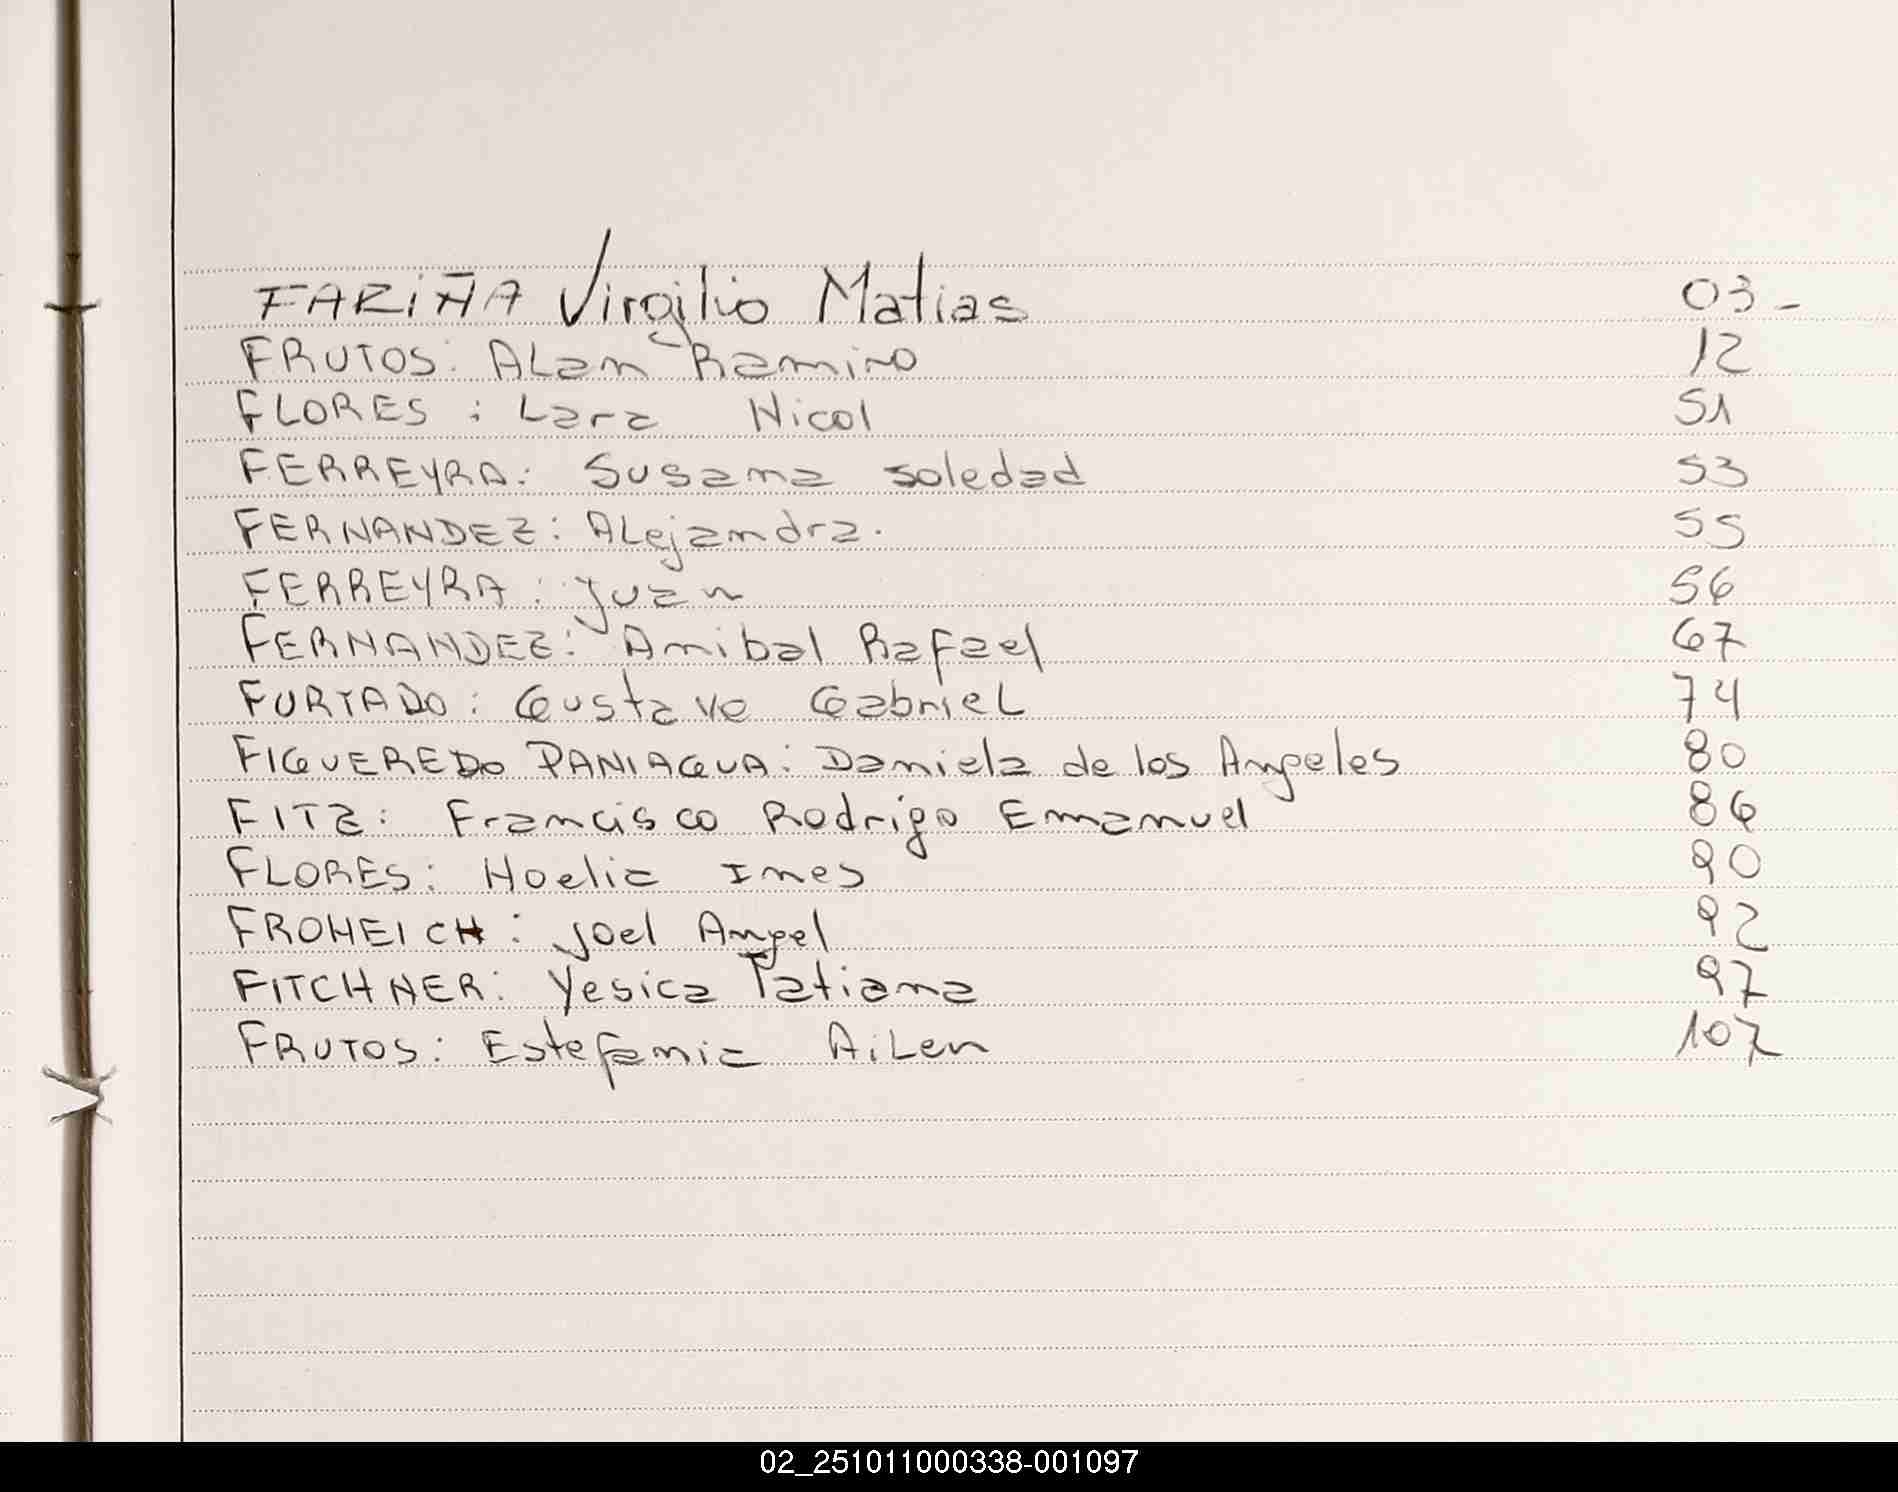 FARIÑA Virgilio Matias 03-
FRUTOS: ALan Ramiro 12
FLORES: Lara Nicol 51
FERREYRA: Susana soledad 53
FERNANDEZ: ALejandra. 55
FERREYRA: Juan 56
FERNANDEZ: Anibal Rafael 67
FURTADO: Gustavo GabrieL 74
FIGUEREDO PANIAGUA: Daniela de los Angeles 80
FITZ: Francisco Rodrigo Emanuel 86
FLORES: Noelia Ines 90
FROHEICH: Joel Angel 92
FITCHNER: Yesica Tatiana 97
FRUTOS: Estefania AiLen 107
02_251011000338-001097